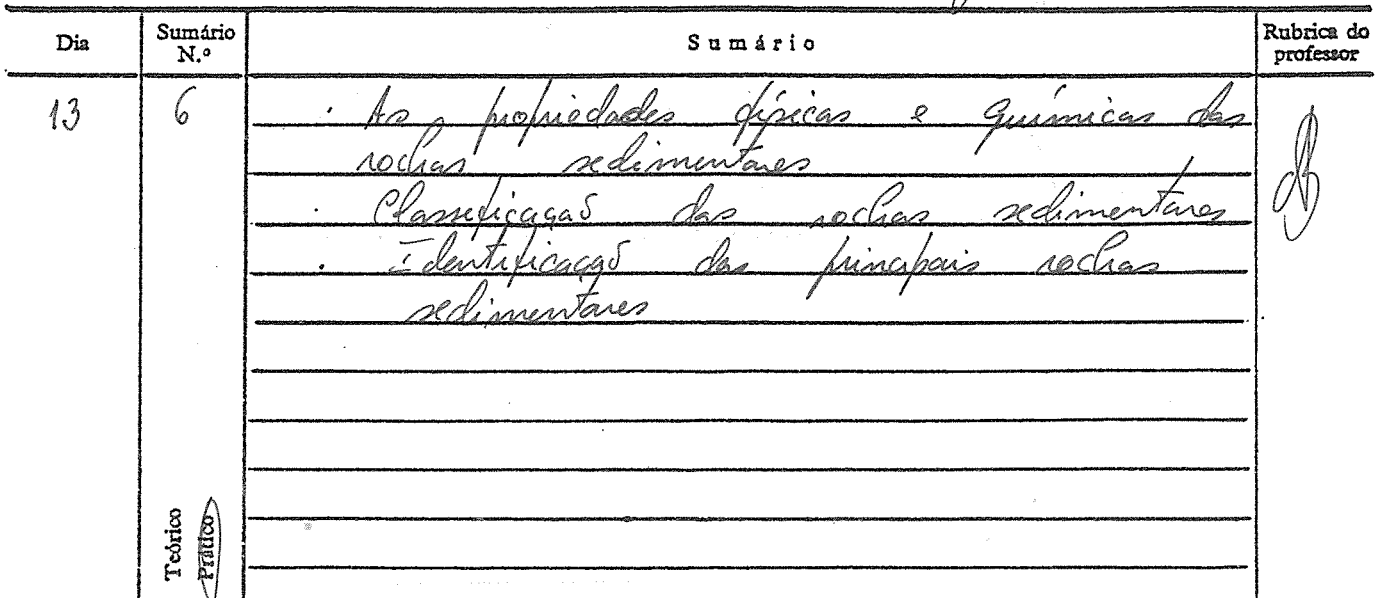 Dia Sumário N.º Sumário Rubrica do professor
13 6 · As propriedades físicas e químicas das
rochas sedimentares
· Classificação das rochas sedimentares
· Identificação das principais rochas
sedimentares
Teórico
Prático